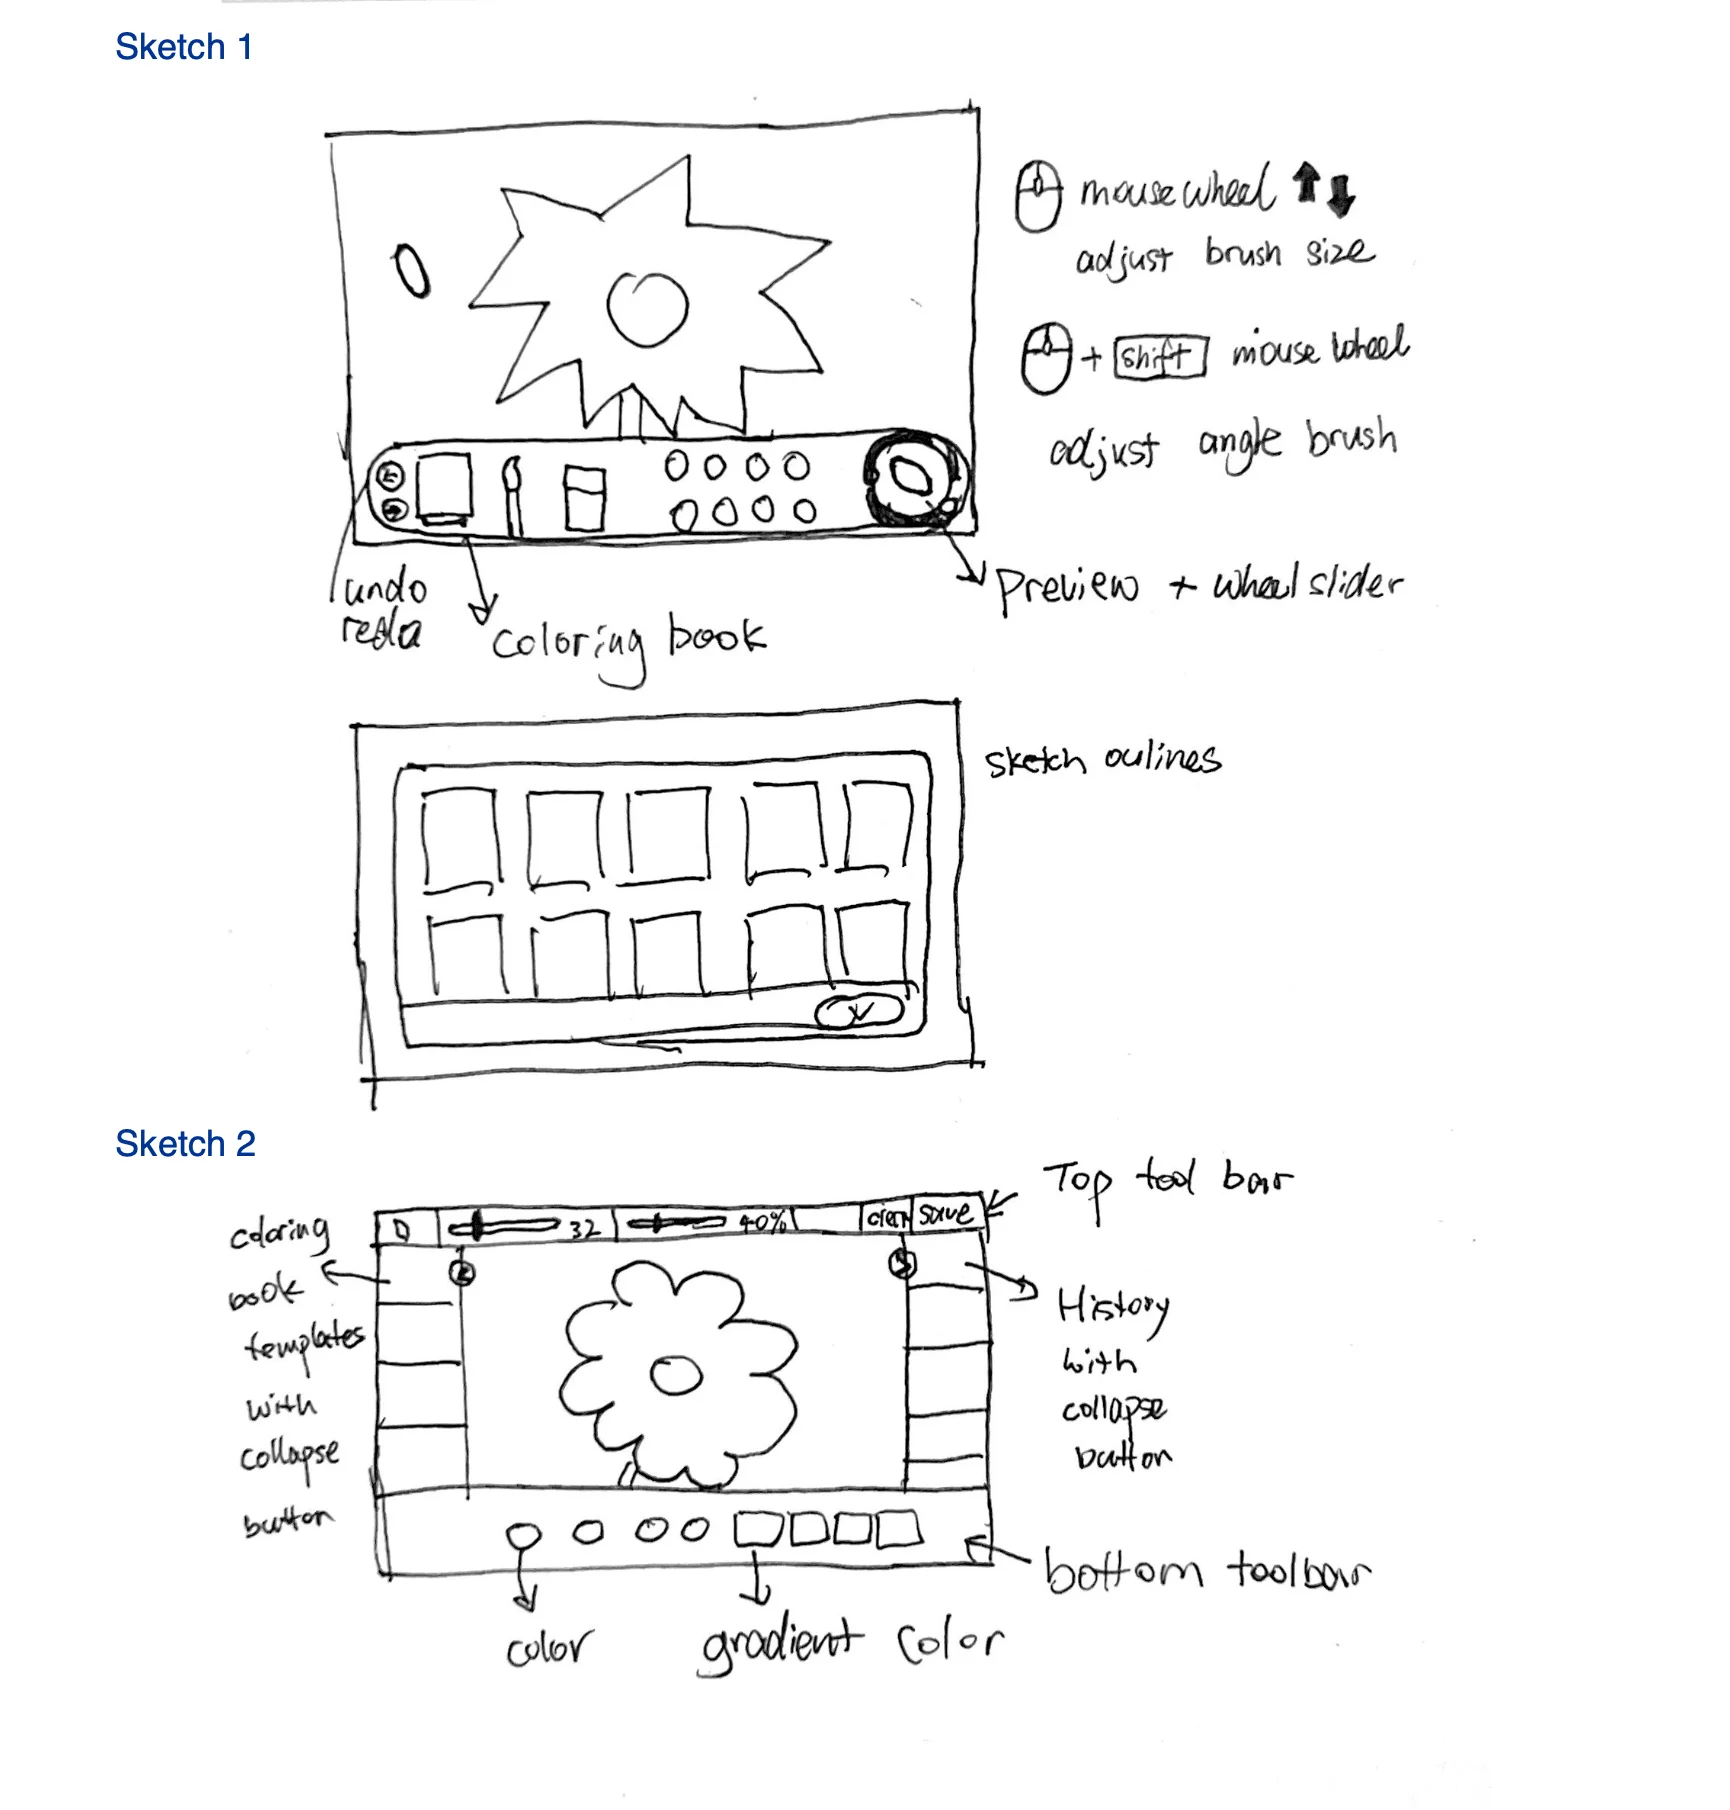 Sketch 1
mouse wheel
adjust brush size
+ shift mouse wheel
adjust angle brush
undo
redo
coloring book
Preview + wheel slider
sketch oulines
Sketch 2
Top tool bar
32
40%
clear
save
coloring
book
templates
with
collapse
button
History
with
collapse
button
bottom toolbar
color
gradient color